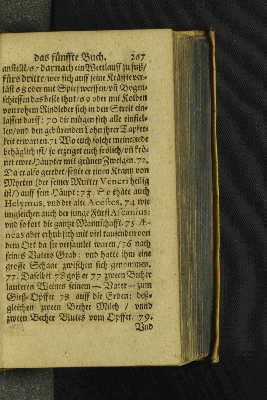 das fünffte Buch. 267
anstellt/67 darnach ein Wettlauff zu fuß/
fürs dritte/ wer sich auff seine Kräffte ver-
läst 68 oder mit Spießwerffen/ uñ Bogen-
schiessen das beste thut/69 oder mit Kolben
von rohem Rindleder sich in den Streit ein-
lassen darff: 70 die mügen sich alle einstel-
len/und den gebürenden Lohn ihrer Tapfer-
keit erwarten. 71 Wo euch solche meine rede
behäglich ist/ so erzeiget euch frölich/ uñ krö-
net ewre Häupter mit grünen Zweigen. 72.
Da er also geredet/ setzte er einen Krantz von
Myrten (der seiner Mutter Veneri heilig
ist/) auff sein Häupt: 73. So thäte auch
Helymus, und der alte Acestes, 74 wie
imgleichen auch der junge Fürst Ascanius:
und so fort die gantze Mannschafft. 75 Æ-
neas aber erhub sich mit viel tausenden von
dem Ort da sie versamlet waren/76 nach
seines Vaters Grab: und hatte ihm eine
grosse Schaar zwischen sich genommen.
77. Daselbst 78 goß er 77 zween Becher
lauteren Weines seinem Vater zum
Gieß-Opffer 78 auff die Erden: deß-
gleichen zween Becher Milch/ unnd
zween Becher Blutes vom Opffer. 79.
Und